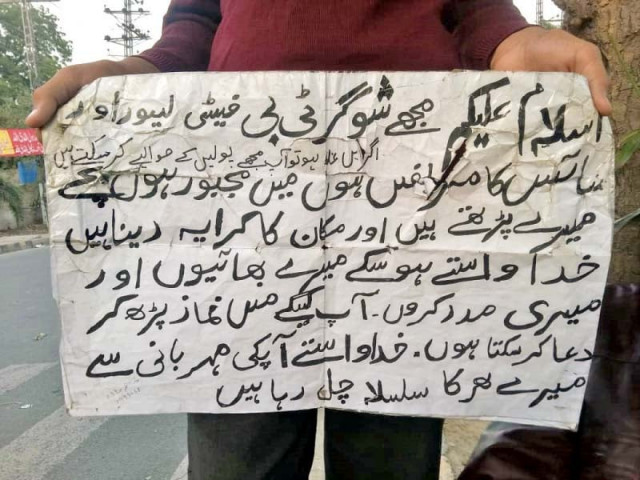 اسلام علیکم مجھے شوگر ٹی بی فیٹی لیور اور
اگر میں غلط ہو تو آپ مجھے پولیس کے حوالے کر سکتے ہیں
کا مریض ہوں میں مجبور ہوں بچے
میرے پڑھتے ہیں اور مکان کا کرایہ دینا ہیں
خدا واستے ہوسکے میرے بھائیوں اور
میری مدد کروں۔ آپ کیلے میں نماز پڑھ کر
دعا کر سکتا ہوں۔ خدا واستے آپکی مہربانی سے
میرے گھر کا سلسلہ چل رہا ہیں